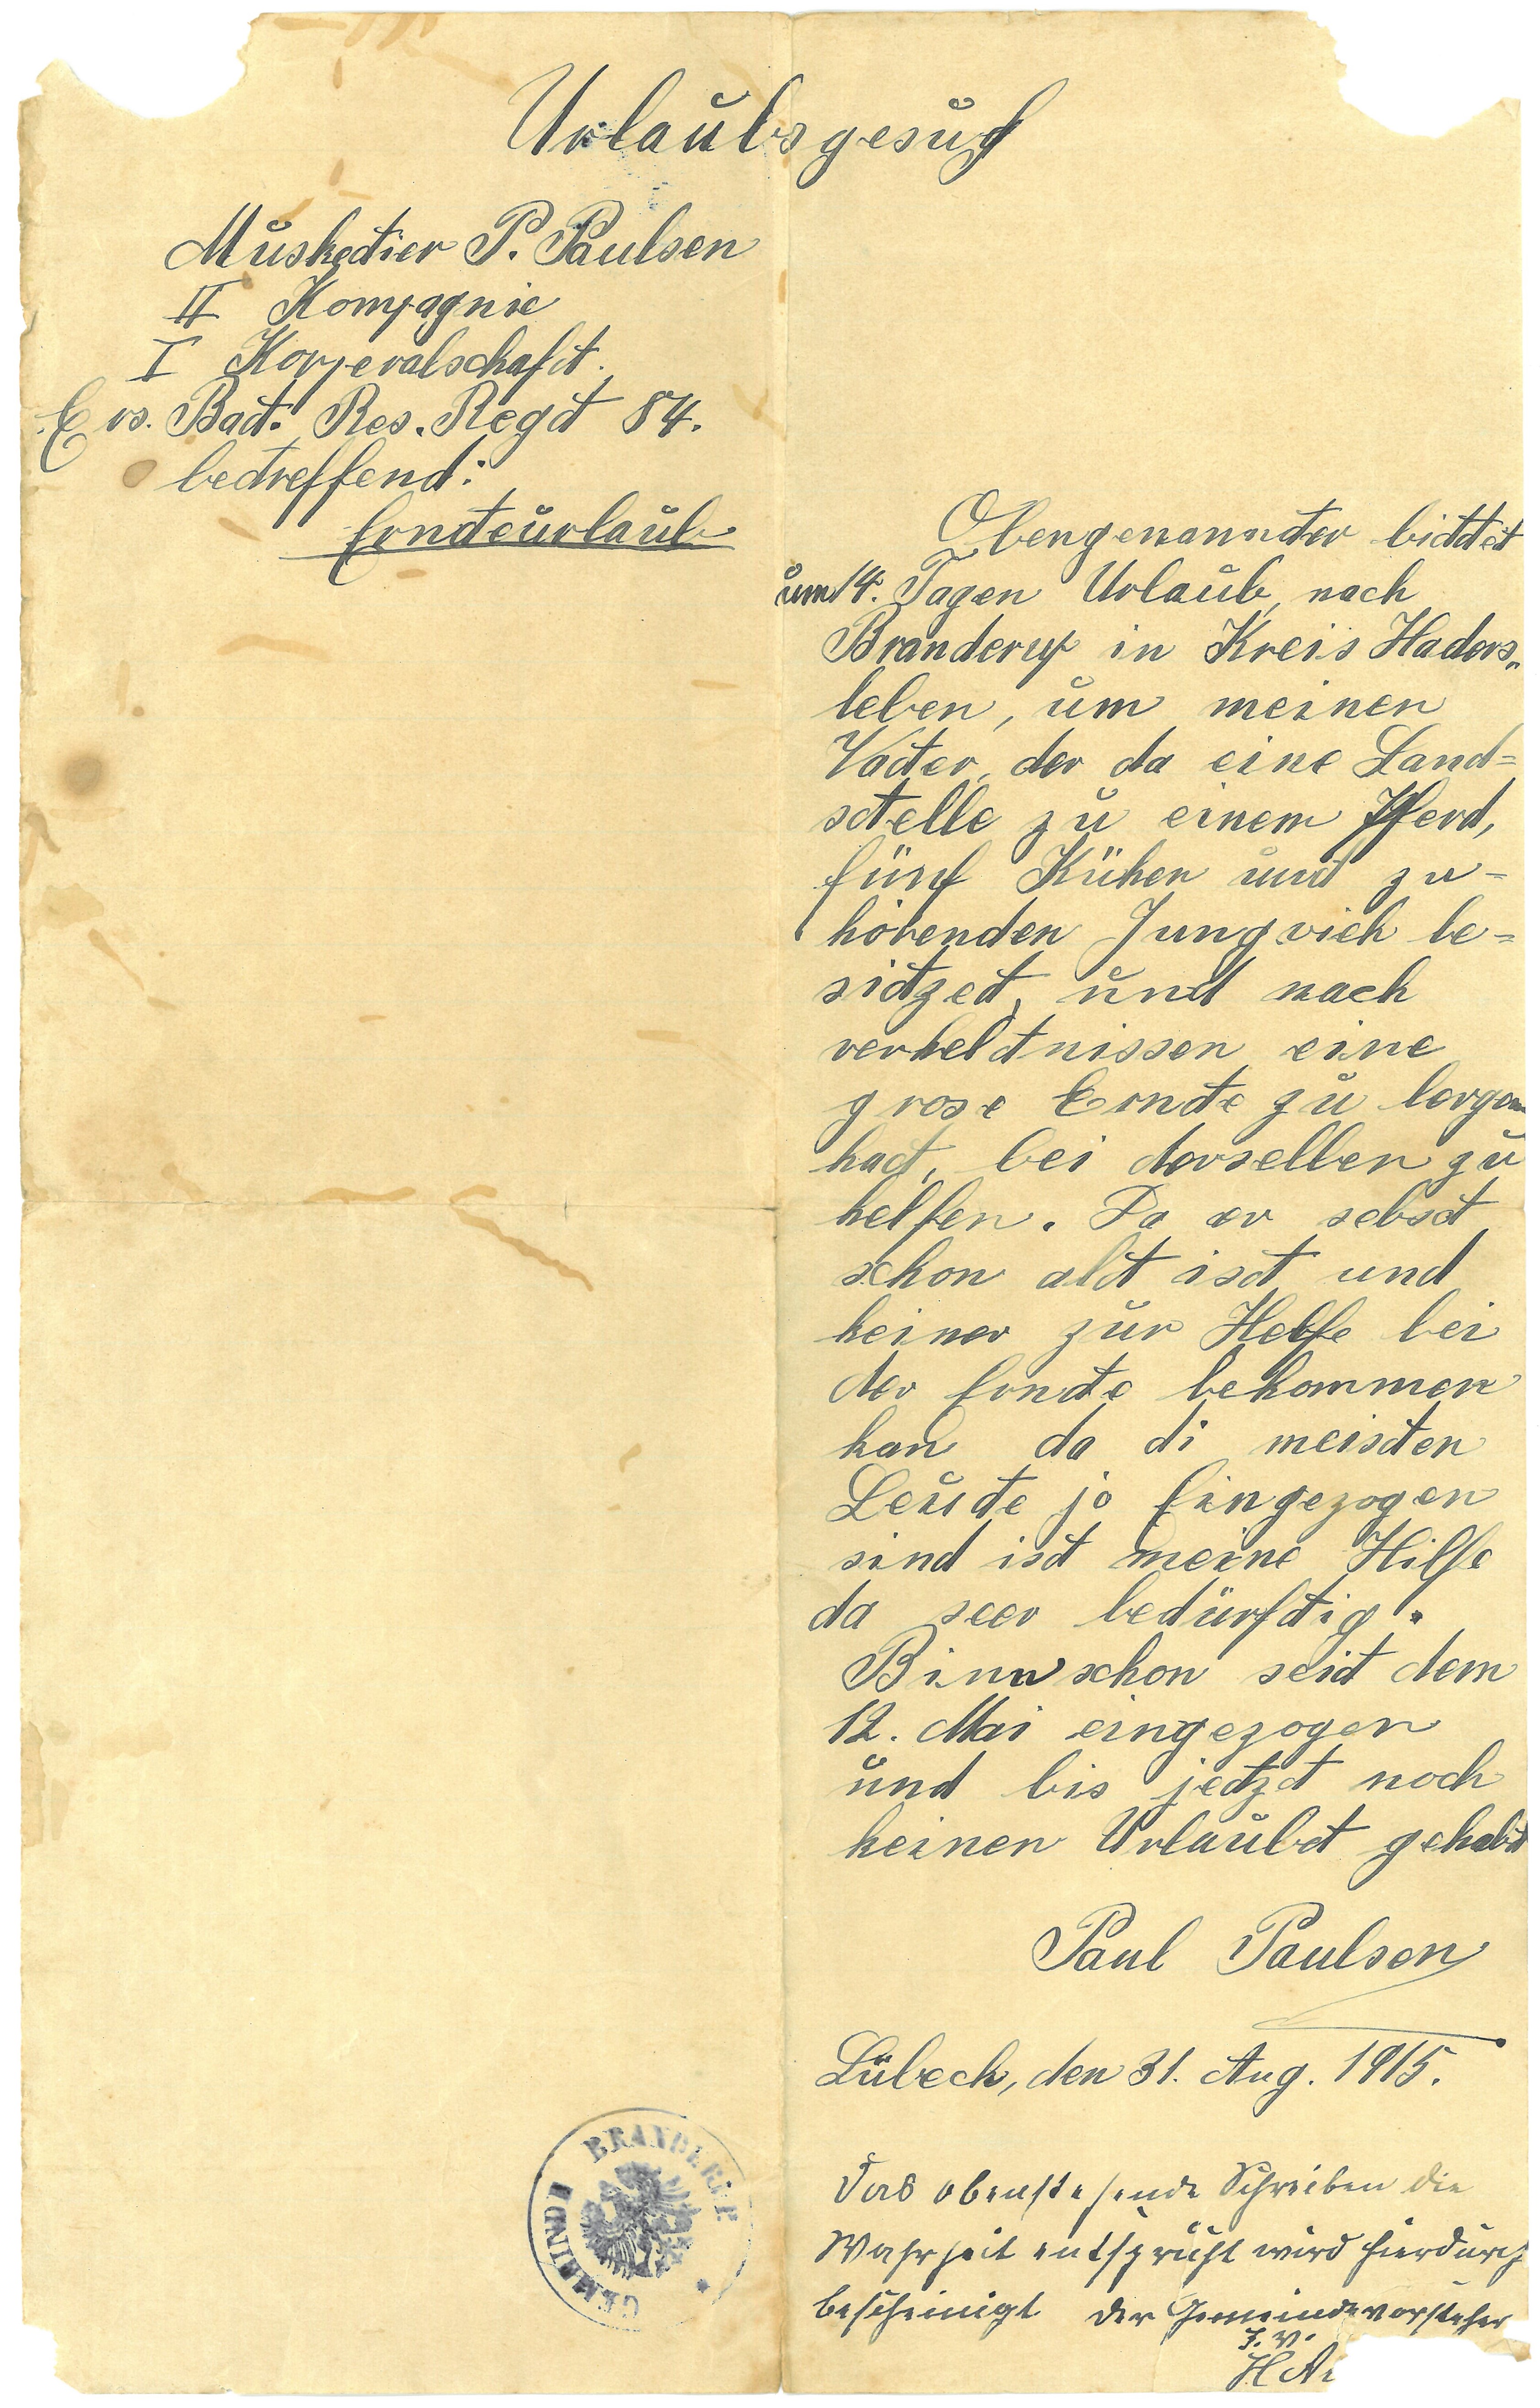 Urlaubsgesuch
Musketier P. Paulsen
II Kompagnie
I Korperalschaft.
Ers. Bat. Res. Regt 84.
betreffend:
Ernteurlaub
Obengenannter bittet
um 14. Tagen Urlaub nach
Branderup in Kreis Haders„
leben, um meinen
Vater, der da eine Land=
stelle zu einem Pferd,
fünf Kühen und zu-
hörenden Jungvieh be=
sitzet, und nach
verheltnissen eine
grose Ernte zu bergen
hat, bei derselben zu
helfen. Da er sebst
schon alt ist und
keiner zur Helfe bei
der Ernte bekommen
kan da di meisten
Leute jo Eingezogen
sind ist meine Hilfe
da seer bedürftig.
Binn schon seit dem
12. Mai eingezogen
und bis jetzt noch
keinen Urlaubt gehabt
Paul Paulsen
Lübeck, den 31. Aug. 1915.
Das obenstehende Schreiben die
Wahrheit entspricht wird hierdurch
bescheinigt der Gemeindevorsteher
J. V.
GEMEINDE BRANDERUP